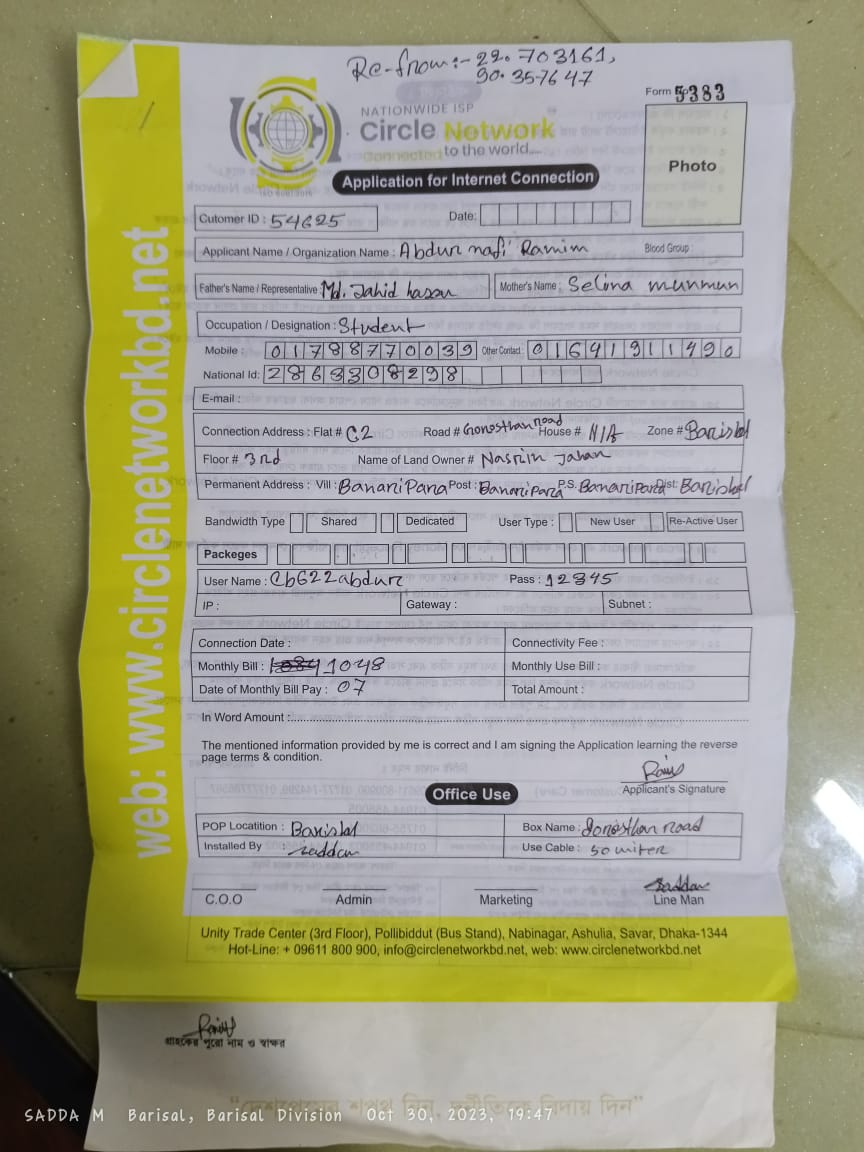 Re-from:- 22.703161,
90.357647
Form 5383
NATIONWIDE ISP
Circle Network
Connected to the world....
ISO 9001:2015
Photo
Application for Internet Connection
Cutomer ID : 54625 Date:
Applicant Name / Organization Name : Abdur nafi Ramim Blood Group :
Father's Name / Representative : Md. Jahid hasan Mother's Name : Selina munmun
Occupation / Designation : Student
Mobile : 01788770039 Other Contact : 01641911490
National Id: 2863308298
E-mail :
Connection Address : Flat # C2 Road # Gonosthan road House # N/A Zone # Barishal
Floor # 3rd Name of Land Owner # Nasrin Jahan
Permanent Address : Vill : BanariPara Post : BanariPara P.S. BanariPara Dist: Barishal
Bandwidth Type Shared Dedicated User Type : New User Re-Active User
Packeges
User Name : Cb622abdur Pass : 12345
IP : Gateway : Subnet :
Connection Date : Connectivity Fee :
Monthly Bill : 1048 Monthly Use Bill :
Date of Monthly Bill Pay : 07 Total Amount :
In Word Amount :
The mentioned information provided by me is correct and I am signing the Application learning the reverse
page terms & condition.
Applicant's Signature
Office Use
POP Locatition : Barishal Box Name : Gonosthan road
Installed By : saddam Use Cable : 50 miter
Saddam
C.O.O Admin Marketing Line Man
Unity Trade Center (3rd Floor), Pollibiddut (Bus Stand), Nabinagar, Ashulia, Savar, Dhaka-1344
Hot-Line: + 09611 800 900, info@circlenetworkbd.net, web: www.circlenetworkbd.net
web: www.circlenetworkbd.net
গ্রাহকের পুরো নাম ও স্বাক্ষর
"দেশপ্রেমের শপথ নিন, দুর্নীতিকে বিদায় দিন"
SADDA M Barisal, Barisal Division Oct 30, 2023, 19:47